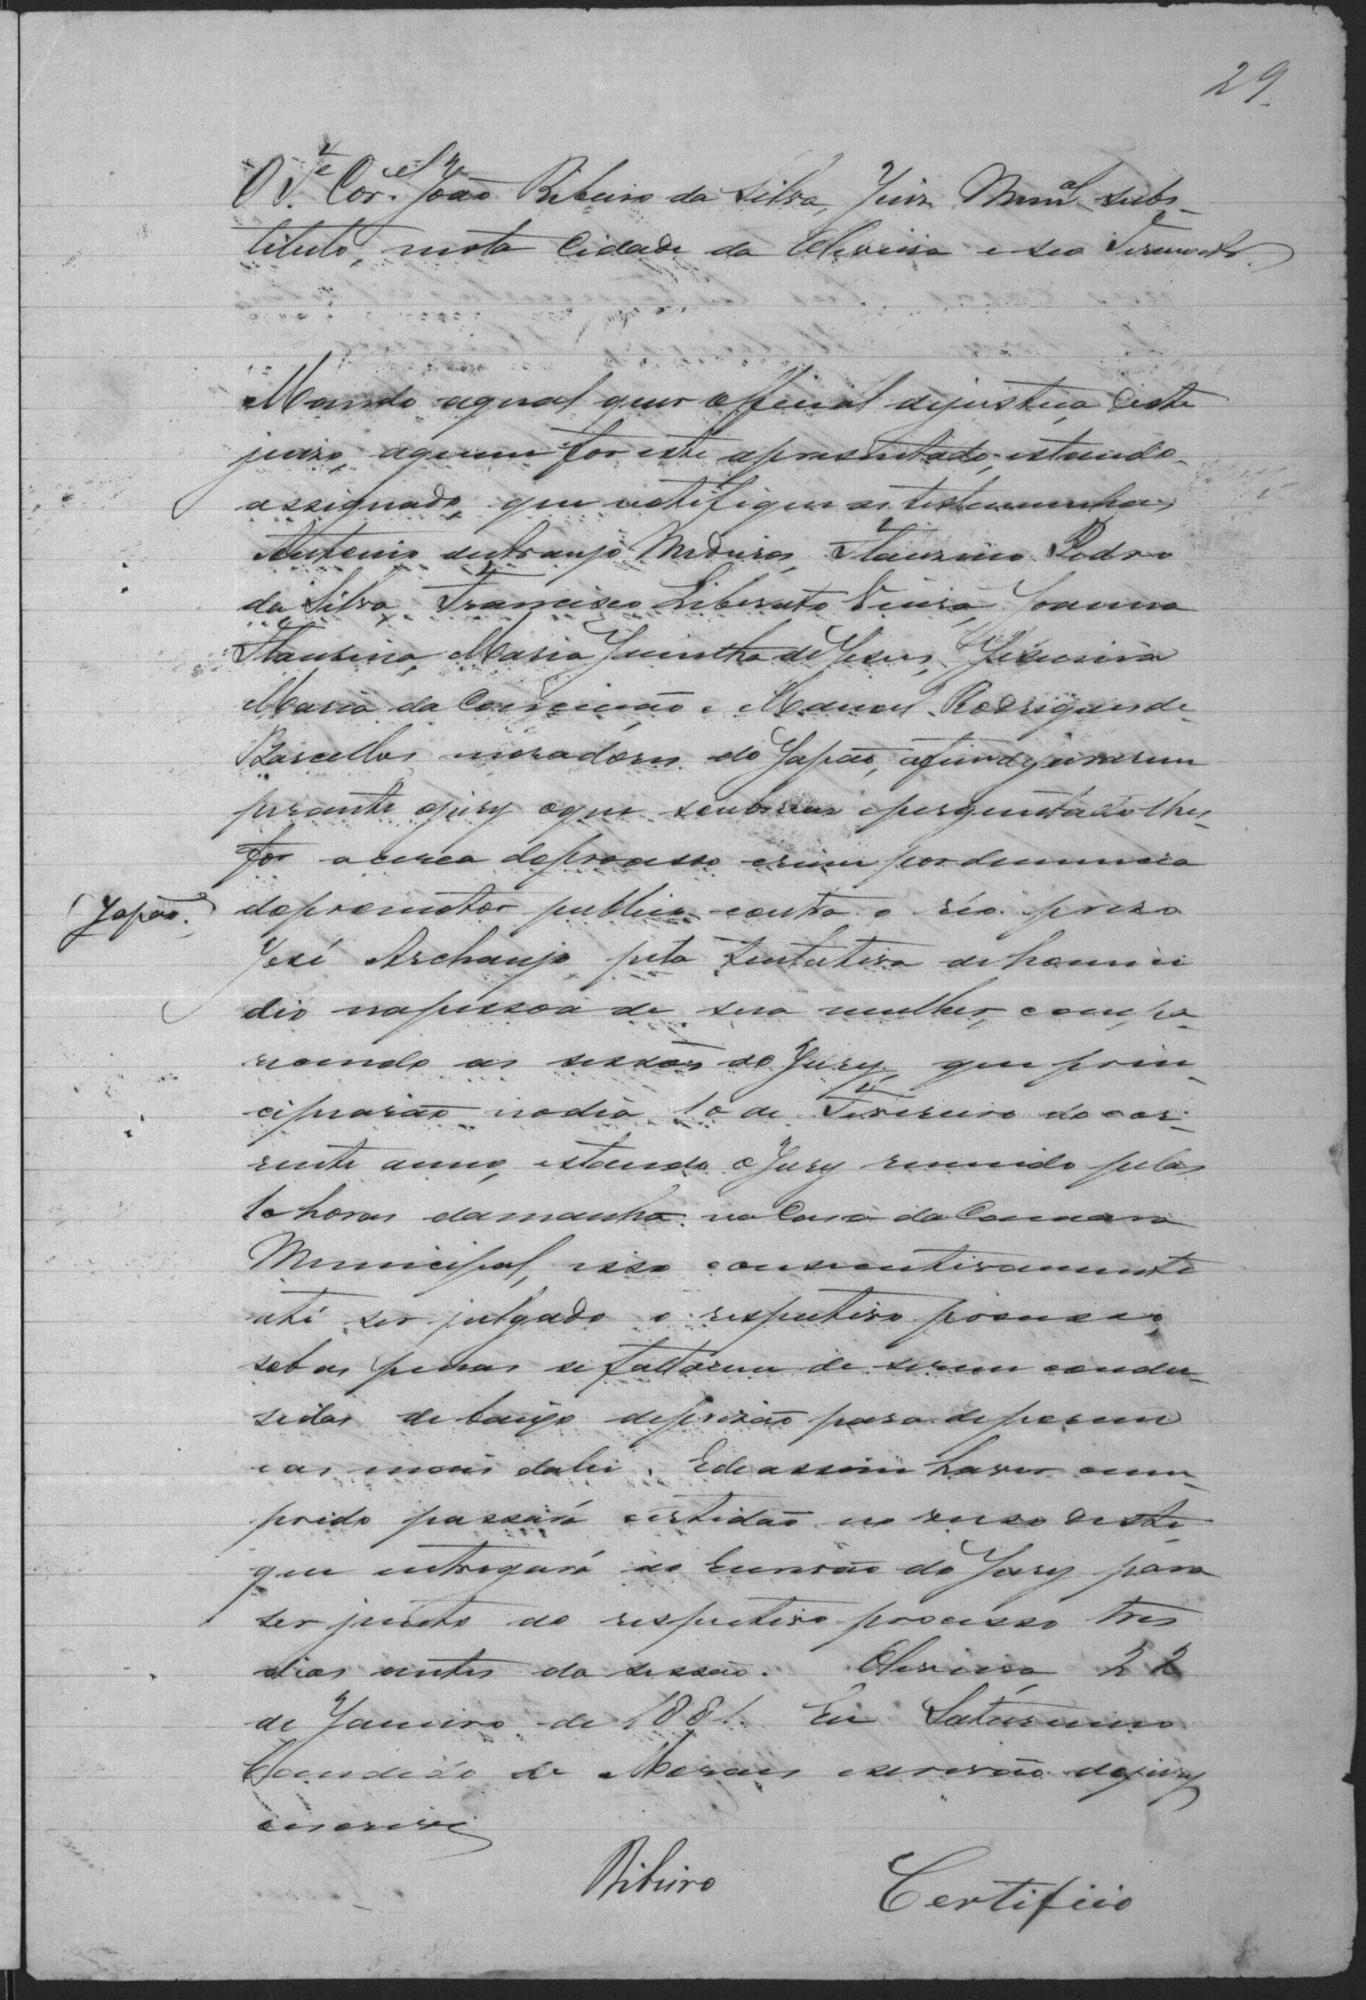 29.
O Te. Corel. João Ribeiro da Silva, Juiz Munal. subs-
tituto, nesta Cidade da Oliveira e seo Termo etc.
Mando aqual quer official dejustiça deste
juizo, aquem for este apresentado, estando
assignado, que notifique as testemunhas
Antonio de Araujo, Flauzino Pedro
da Silva, Francisco Liberato Vieira, Joanna
Flauzina, Maria Jacintha de Jesus, Jezuina
Maria da Conceicão e Manoel Rodrigues de
Barcellos moradores do Japão, afim djurarem
perante ojury oque souberem eperguntado lhes
for acerca doprocesso crime por denuncia
(Japão.) dopromotor publico contra o réo prezo
José Archanjo pela tentativa dehomici
dio napessoa de sua mulher, compa-
recendo as sessões do Jury, que prin-
cipiarão nodia 10 de Fevereiro do cor-
rente anno, estando o Jury reunido pelas
10 horas damanha na Casa da Camara
Municipal, isso consecutivamente
até ser julgado o respectivo processo,
sobas penas se faltarem de serem condu-
sidas debaixo deprizão para deporem
eas mais dalei. Edeassim haver cum-
prido passará certidão no verso deste
que entregará ao Escrivão do Jury para
ser junto ao respectivo processo tres
dias antes da sessão. Oliveira 22
de Janeiro de 1881. Eu Saturnino
Candido de Moraes escrivão dojury
oescrivi
Ribeiro
Certifico